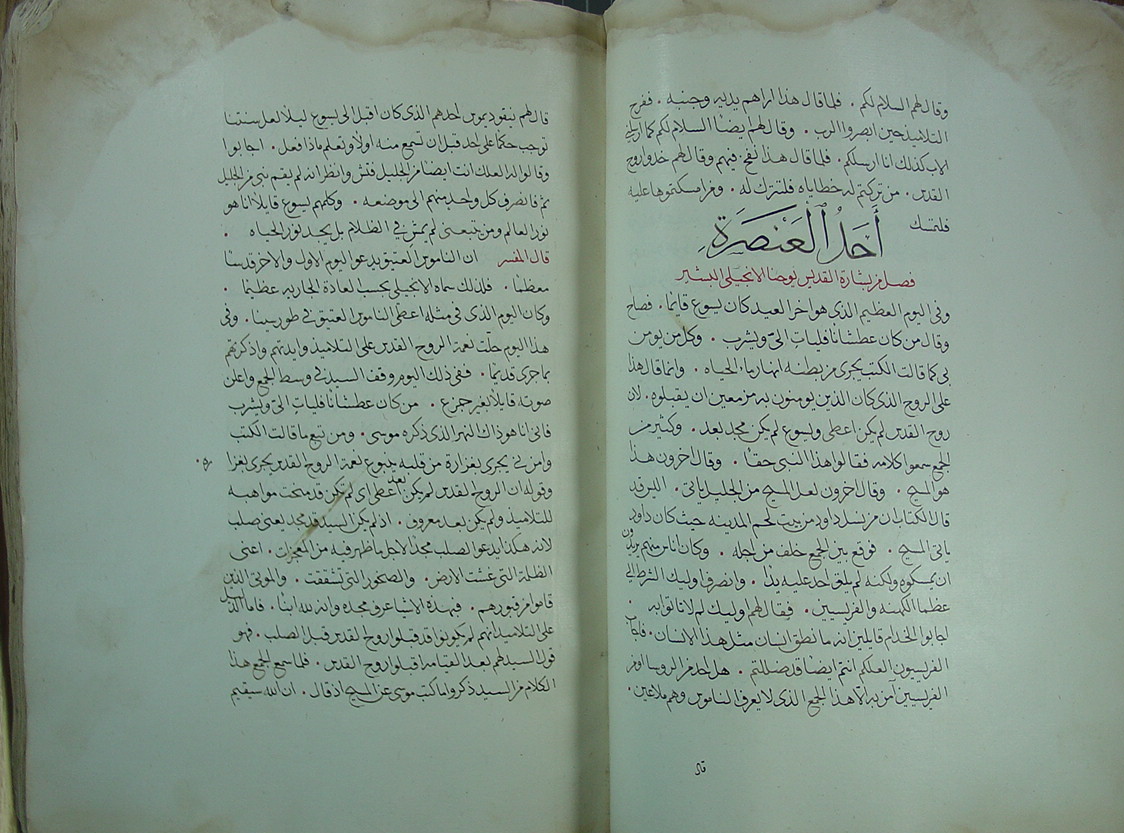 وقال لهم السلام لكم . فلما قال هذا اراهم يديه وجنبه . ففرح
التلاميذ حين ابصروا الرب . وقال لهم ايضا السلام لكم كما ارسلني
الاب كذلك انا ارسلكم . فلما قال هذا نفخ فيهم وقال لهم خذوا روح
القدس . من تركتم له خطاياه فلتترك له . ومن امسكتموها عليه
فلتمسك
أَحَدُ ٱلعَنصَرَةِ
فصل من بشارة القديس يوحنا الانجيلي البشير
وفى اليوم العظيم الذى هو اخر العيد كان يسوع قائما . فصاح
وقال من كان عطشانا فليات الىّ ويشرب . وكل من يومن
بى كما قالت الكتب يجرى من بطنه انهار ماء الحياه . وانما قال هذا
على الروح الذى كان الذين يومنون به مزمعين ان يقبلوه . لان
روح القدس لم يكن اعطى ويسوع لم يكن مجد بعد . وكثير من
الجمع سمعوا كلامه فقالوا هذا النبى حقا . وقال اخرون هذا
هو المسيح . وقال اخرون لعل المسيح من الجليل ياتى . اليس قد
قال الكتاب ان من نسل داود من بيت لحم المدينه حيث كان داود
ياتى المسيح . فوقع بين الجمع خلف من اجله . وكان اناس منهم يريدون
ان يمسكوه ولكنه لم يلق احد عليه يدا . وانصرف اوليك الشرط الى
عظما الكهنه والفريسيين . فقال لهم اوليك لم لا تاتوا به .
اجابوا الخدام قايلين انه ما نطق انسان مثل هذا الانسان . فاجاب
الفريسيون العلكم انتم ايضا قد ضللتم . هل احد من الروسا او من
الفريسيين آمن به الا هذا الجمع الذى لا يعرف الناموس وهم ملاعين .
قال
قال لهم نيقوديموس احدهم الذى كان اقبل الى يسوع ليلا لعل سنتنا
توجب حكما على احد قبل ان تسمع منه اولا وتعلم ماذا فعل . اجابوا
وقالوا له لعلك انت ايضا من الجليل فتش وانظر انه لم يقم نبى من الجليل
ثم انصرف كل واحد منهم الى موضعه . وكلمهم يسوع قايلا انا هو
نور العالم ومن تبعنى لم يمش في الظلام بل يجد نور الحياه .
قال المفسر ان الناموس العتيق يدعو اليوم الاول والاخر قدسا
معظما . فلذلك سماه الانجيلى بحسب العادة الجاريه عظيما .
وكان اليوم الذى فى مثله اعطى الناموس العتيق في طور سينا . وفى
هذا اليوم حلت نعمة الروح القدس على التلاميذ وايدتهم واذكرتهم
بما جرى قديما . ففى ذلك اليوم وقف السيد في وسط الجمع واعلن
صوته قايلا بغير جزع . من كان عطشانا فليات الىّ ويشرب
فانى انا هو ذاك النهر الذى ذكره موسى . ومن تبع ما قالت الكتب
وامن بى يجرى بغزارة من قلبه ينبوع نعمة الروح القدس يجرى بغزا
وقوله ان الروح القدس لم يكن بعد اعطى اى لم تكن قد منحت مواهبه
للتلاميذ ولم يكن بعد معروف . اذ لم يكن السيد قد مجد يعنى صلب
لانه هكذا يدعو الصلب مجدا لاجل ما ظهر فيه من المعجزات . اعنى
الظلمة التى غشت الارض . والصخور التى تشققت . والموتى الذين
قاموا من قبورهم . فبهذه الاشيا عرف مجده وانه لله ابنا . فاما الدليل
على التلاميذ انهم لم يكونوا قد قبلوا روح القدس قبل الصلب . فهو
قول السيد لهم بعد القيامه اقبلوا روح القدس . فلما سمع الجمع هذا
الكلام من السيد ذكروا ما كتب موسى عن المسيح اذ قال . ان الله سيقيم